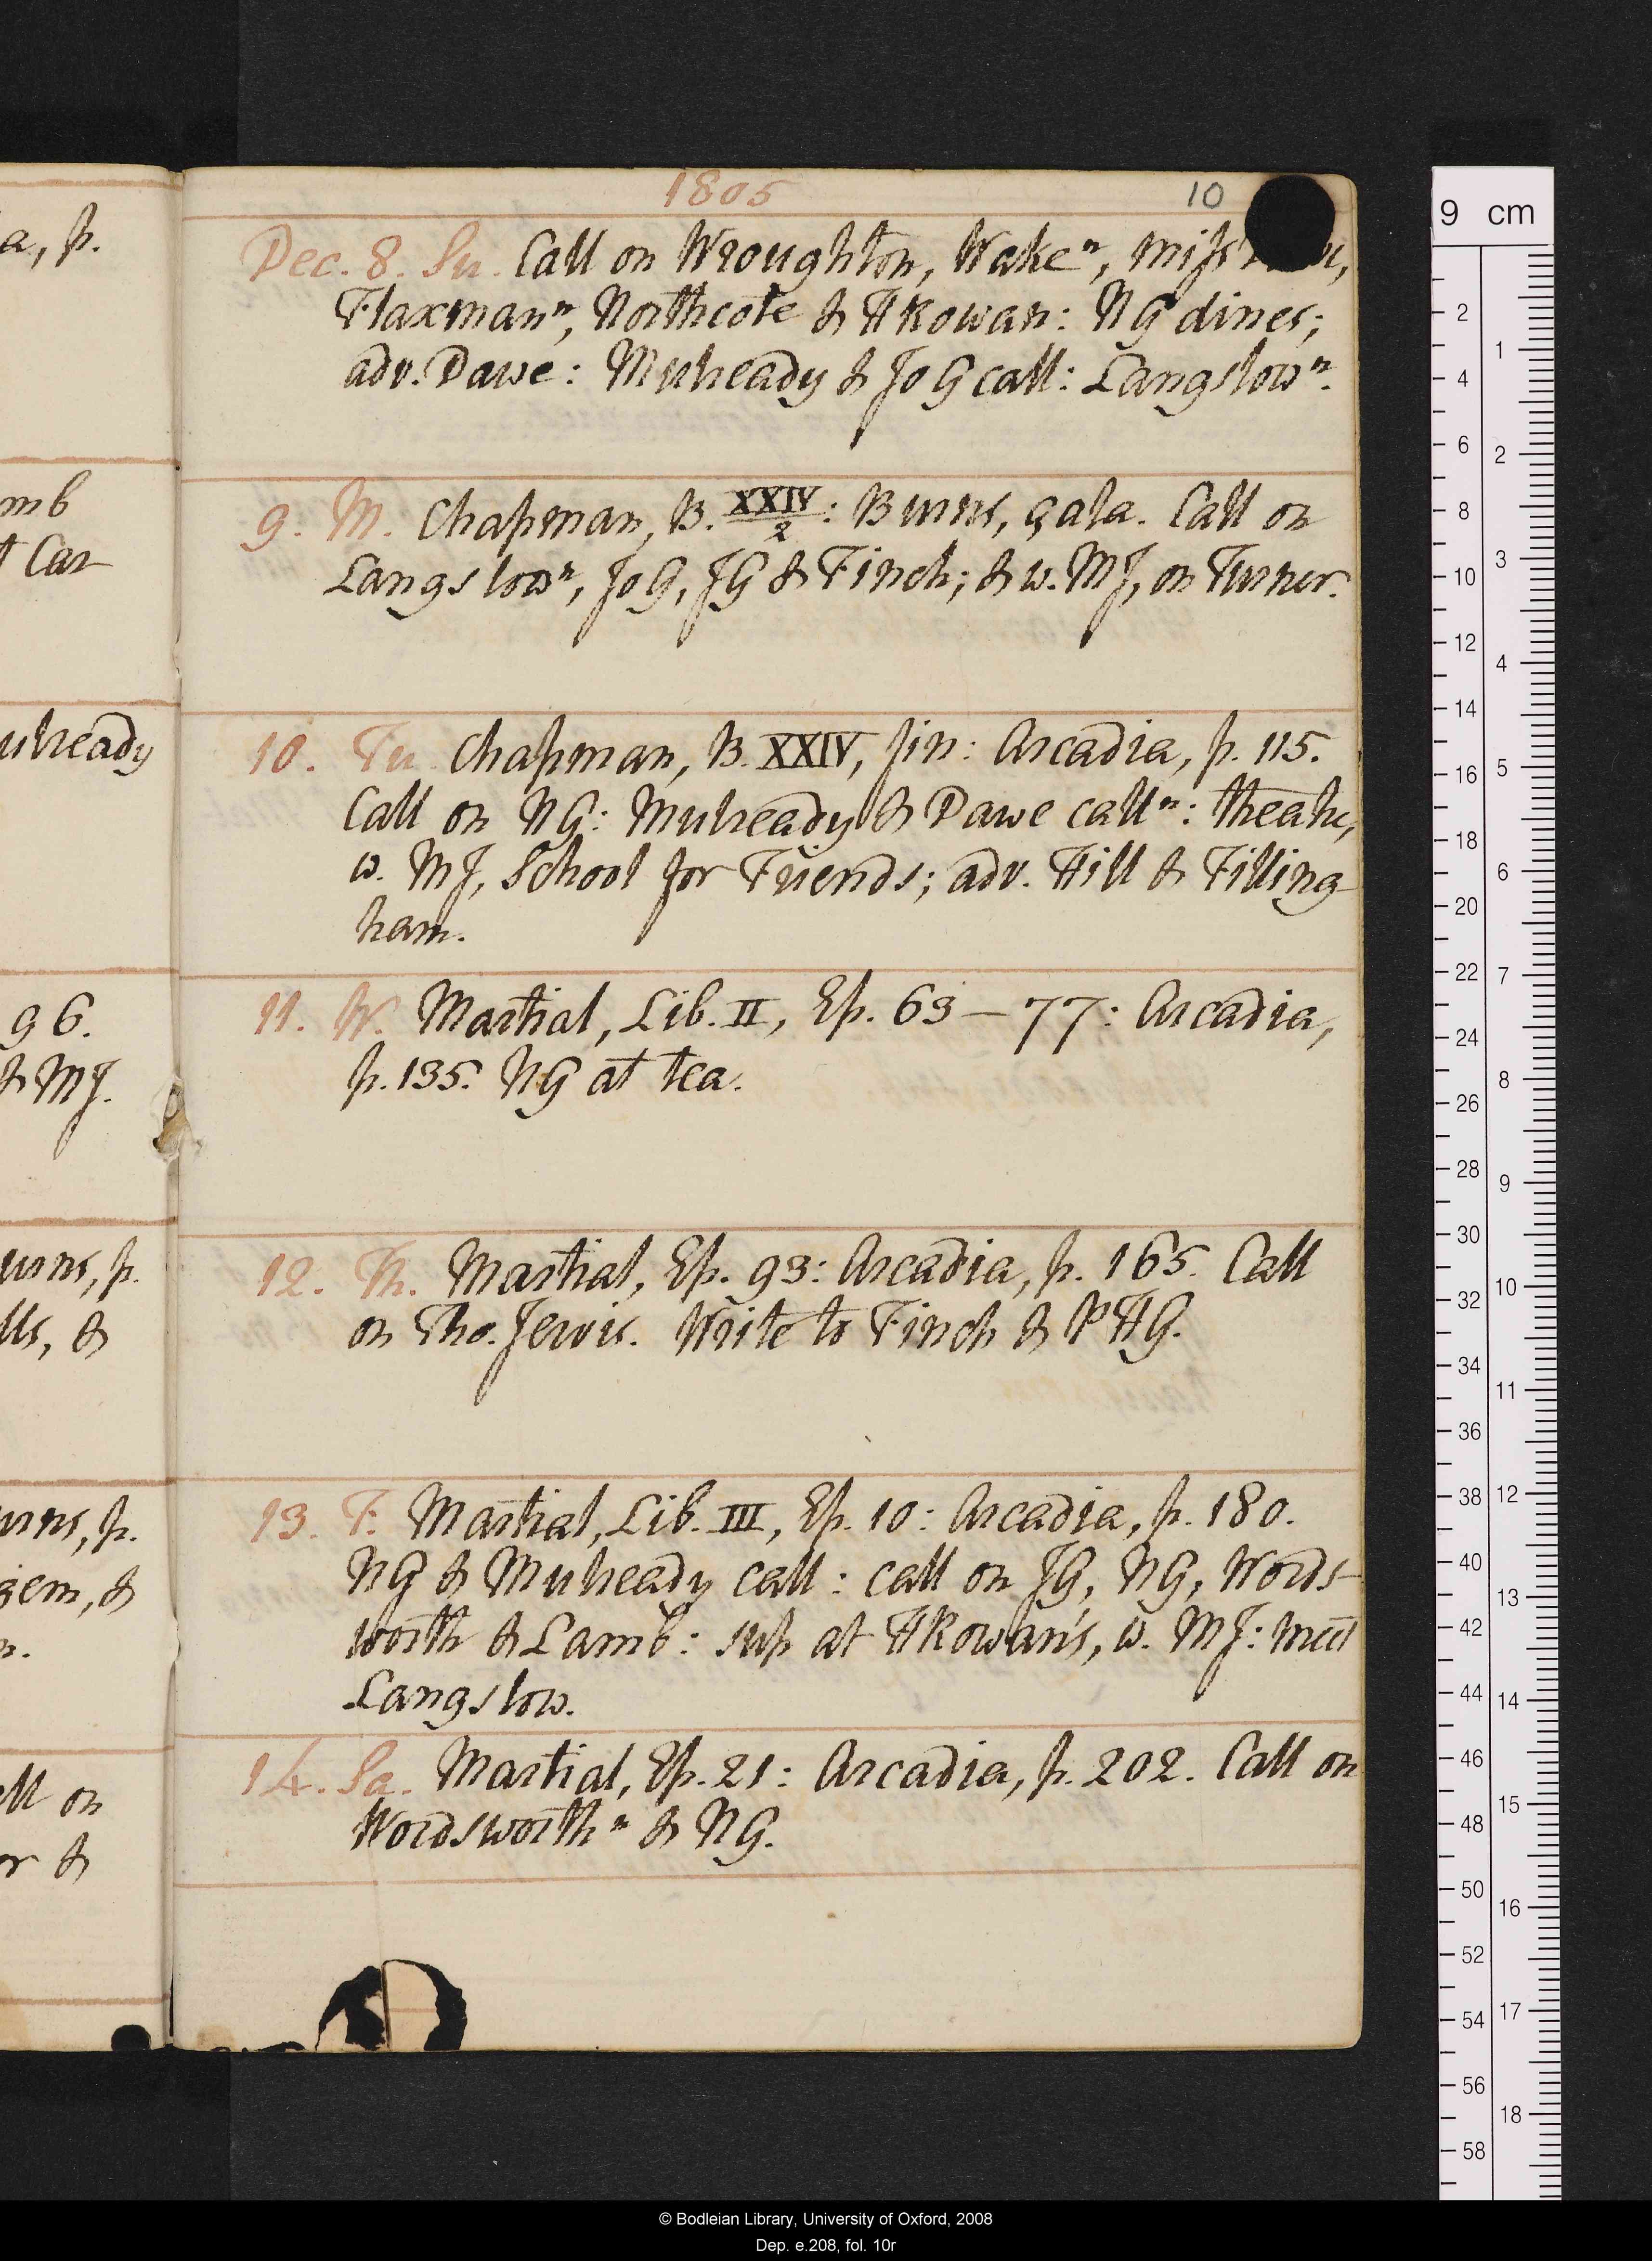 1805 10
Dec. 8. Su. Call on Wroughton, Wakeⁿ, miss
Flaxmanⁿ, Northcote & HRowan: NG dines;
adv. Dawe: Mulready & JoG call: Langslowⁿ.
9. M. Chapman, B. XXIV/2: Burns, çala. Call on
Langslowⁿ, JoG, JG & Finch; & w. MJ, on Turner.
10. Tu. Chapman, B. XXIV, fin: Arcadia, p. 115.
Call on NG: Mulready & Dawe callⁿ: theatre,
w. MJ, School for Friends; adv. Hill & Filling-
ham.
11. W. Martial, Lib. II, Ep. 63–77: Arcadia,
p. 135. NG at tea.
12. Th. Martial, Ep. 93: Arcadia, p. 165. Call
on Tho. Jervis. Write to Finch & PHG.
13. F. Martial, Lib. III, Ep. 10: Arcadia, p. 180.
NG & Mulready call: call on JG, NG, Words-
worth & Lamb: sup at HRowan's, w. MJ: meet
Langslow.
14. Sa. Martial, Ep. 21: Arcadia, p. 202. Call on
Wordsworthⁿ & NG.
a, p.
mb
t Car-
ulready
96.
& MJ.
urns, p.
lls, &
urns, p.
gem, &
n.
all on
or &
9 cm
2
4
6
8
10
12
14
16
18
20
22
24
26
28
30
32
34
36
38
40
42
44
46
48
50
52
54
56
58
1
2
3
4
5
6
7
8
9
10
11
12
13
14
15
16
17
18
© Bodleian Library, University of Oxford, 2008
Dep. e.208, fol. 10r